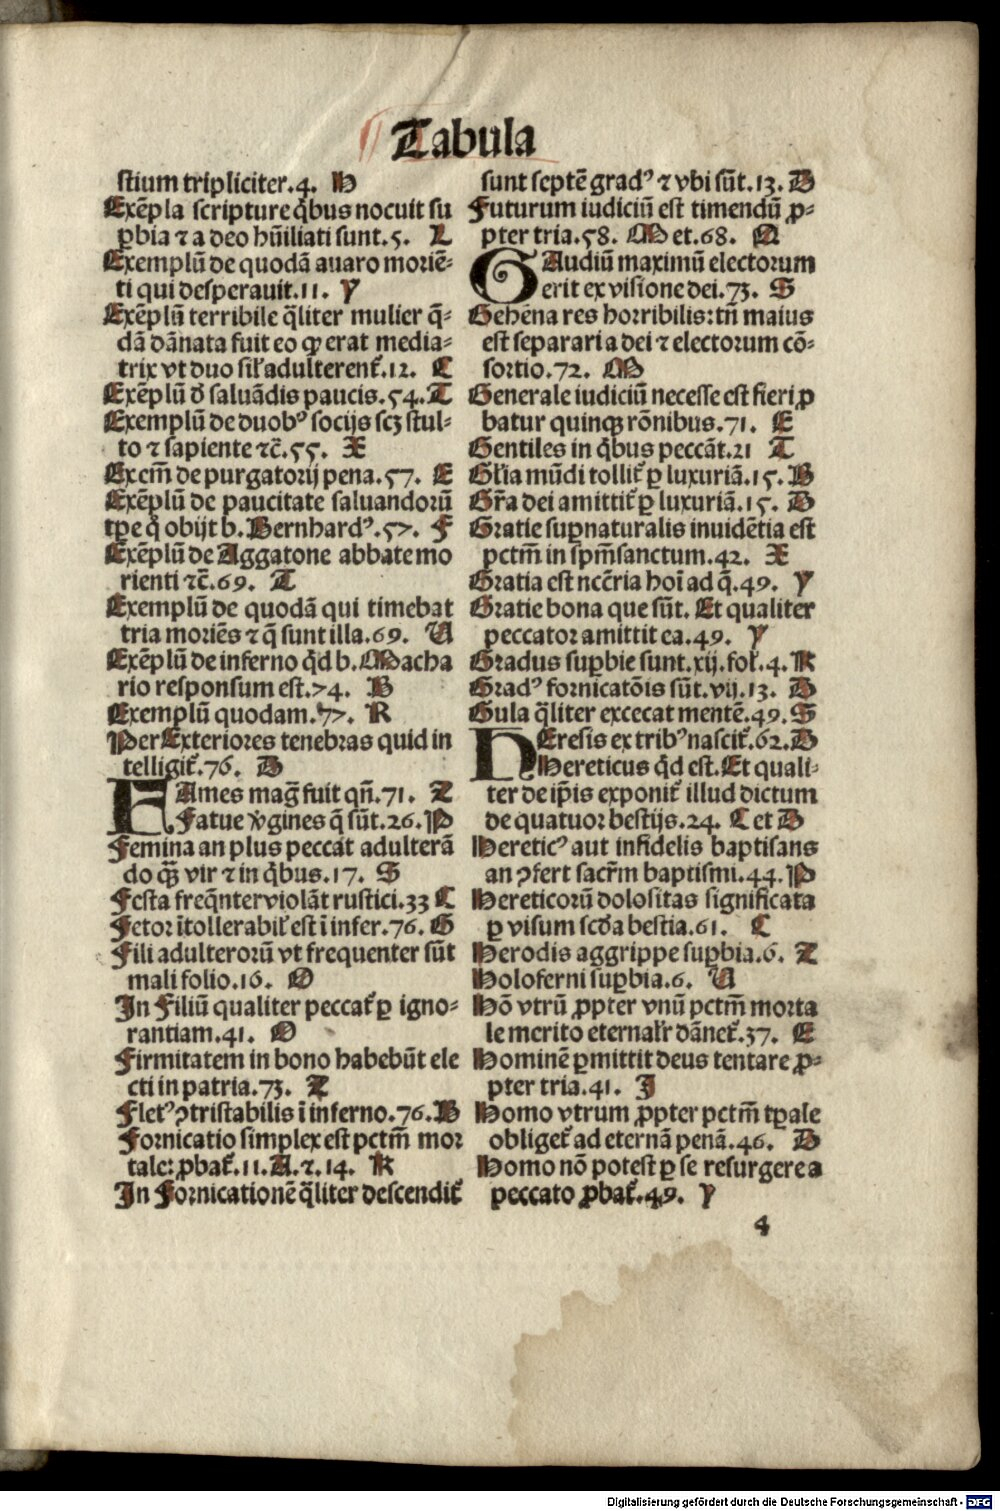 Tabula
stium tripliciter.4. H
Exẽpla scripture q̃bus nocuit su
ꝑbia ⁊ a deo hũiliati sunt.5. L
Exemplũ de quodã auaro moriẽ-
ti qui desperauit.11. Y
Exẽplũ terribile q̃liter mulier q̃-
dã dãnata fuit eo ꝙ erat media-
trix vt duo sił adulterent̃.12. C
Exẽplũ ð saluãdis paucis.54. T
Exemplũ de duobꝰ socijs scꝫ stul-
to ⁊ sapiente ⁊c̃.55. X
Excm̃ de purgatorij pena.57. E
Exẽplũ de paucitate saluandorũ
tꝑe q̃ obijt b. Bernhardꝰ.57. F
Exẽplũ de Aggatone abbate mo
rienti ⁊c̃.69. T
Exemplũ de quodã qui timebat
tria moriẽs ⁊ q̃ sunt illa.69. U
Exẽplũ de inferno q̃d b. Macha
rio responsum est.74. B
Exemplũ quodam.77. R
Per Exteriores tenebras quid in
telligit̃.76. D
FAmes mag̃ fuit qñ.71. Z
Fatue v̾gines q̃ sũt.26. P
Femina an plus peccat adulterã
do q̃ꝫ vir ⁊ in q̃bus.17. S
Festa freq̃nter violãt rustici.33 C
Fetor ĩtollerabił est ĩ infer.76. G
Fili adulterorũ vt frequenter sũt
mali folio.16. O
In Filiũ qualiter peccat̃ ꝑ igno-
rantiam.41. O
Firmitatem in bono habebũt ele
cti in patria.73. Z
Fletꝰ ꝯtristabilis ĩ inferno.76. B
Fornicatio simplex est pctm̃ mor
tale: ꝓbat̃.11. A.⁊.14. K
In Fornicationẽ q̃liter descendit̃
sunt septẽ gradꝰ ⁊ vbi sũt.13. D
Futurum iudiciũ est timendũ ꝓ-
pter tria.58. M et.68. Q
GAudiũ maximũ electorum
erit ex visione dei.73. S
Gehẽna res horribilis: tñ maius
est separari a dei ⁊ electorum cõ-
sortio.72. M
Generale iudiciũ necesse est fieri ꝓ
batur quinqꝫ rõnibus.71. E
Gentiles in q̃bus peccãt.21 T
Gl̃ia mũdi tollit̃ ꝑ luxuriã.15. B
Gr̃a dei amittit̃ ꝑ luxuriã.15. D
Gratie suꝑnaturalis inuidẽtia est
pctm̃ in spm̃sanctum.42. X
Gratia est ncẽria hoĩ ad q̃.49. Y
Gratie bona que sũt. Et qualiter
peccator amittit ea.49. Y
Gradus suꝑbie sunt.xij.foł.4. K
Gradꝰ fornicatõis sũt.vij.13. D
Gula q̃liter excecat mentẽ.49. S
HEresis ex tribꝰ nascit̃.62. D
Hereticus q̃d est. Et quali-
ter de ip̃is exponit̃ illud dictum
de quatuor bestijs.24. C et D
Hereticꝰ aut infidelis baptisans
an ꝯfert sacr̃m baptismi.44. P
Hereticorũ dolositas significata
ꝑ visum scða bestia.61. C
Herodis aggrippe suꝑbia.6. Z
Holoferni suꝑbia.6. U
Hõ vtrũ ꝓpter vnũ pctm̃ morta
le merito eternałr dãnet̃.37. E
Hominẽ ꝑmittit deus tentare ꝓ-
pter tria.41. I
Homo vtrum ꝓpter pctm̃ tꝑale
obliget̃ ad eternã penã.46. D
Homo nõ potest ꝑ se resurgere a
peccato ꝓbat̃.49. Y
4
Digitalisierung gefördert durch die Deutsche Forschungsgemeinschaft - DFG